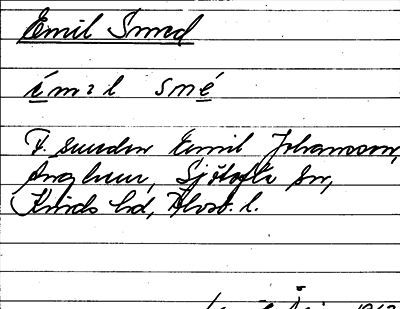 Emil Smed
é m ɩ l smé
F. smeden Emil Johansson,
Sjötofta sn,
Kinds hd, Älvsb. l.